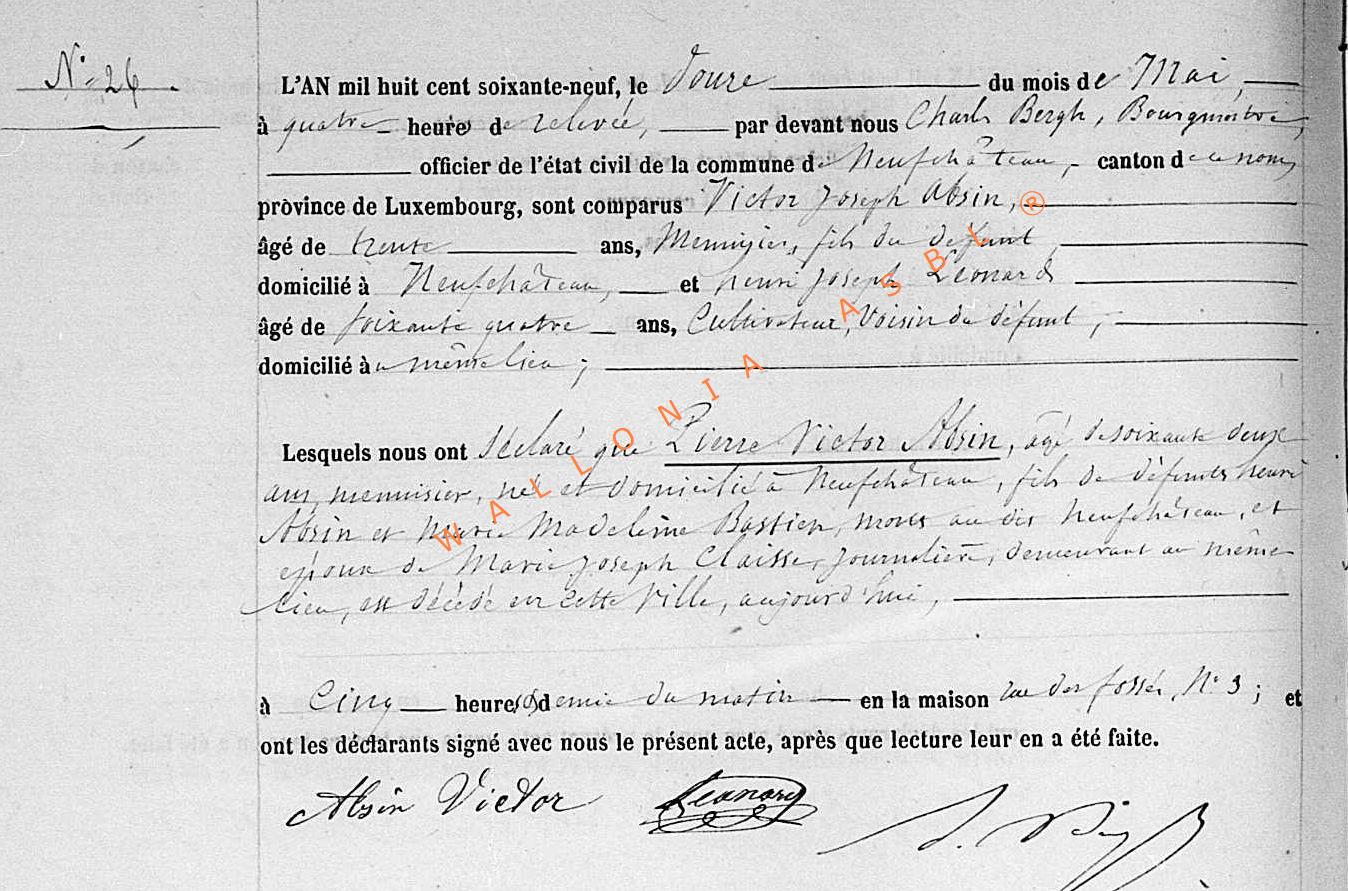 N° 26
L'AN mil huit cent soixante-neuf, le douze du mois de Mai,
à quatre heures de relevée, par devant nous Charles Bergh, Bourgmestre,
officier de l'état civil de la commune de Neufchâteau, canton de ce nom,
province de Luxembourg, sont comparus Victor Joseph Absin,
âgé de trente ans, Menuisier, fils du défunt,
domicilié à Neufchâteau, et henri Joseph Léonard
âgé de soixante quatre ans, Cultivateur, Voisin du défunt,
domicilié au même lieu;
Lesquels nous ont déclaré que Pierre Victor Absin, âgé de soixante deux
ans, menuisier, né et domicilié à Neufchâteau, fils de défunts henri
Absin et Marie Madeleine Bastien, morts au dit Neufchâteau, et
époux de Marie Joseph Claisse, Journalière, demeurant au même
lieu, est décédé en cette Ville, aujourd'hui,
à Cinq heures et demie du matin en la maison rue des fossés, N° 3; et
ont les déclarants signé avec nous le présent acte, après que lecture leur en a été faite.
Absin Victor Léonard
WALLONIA ASBL ®